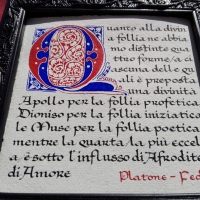 Quanto alla divin
a follia ne abbia
mo distinte qua
ttro forme/a ci
ascuna delle q
uali è preposta
una divinità
Apollo per la follia profetica
Dioniso per la follia iniziatic
le Muse per la follia poetica
mentre la quarta la più eccel
a è sotto l'influsso di Afrodite
di Amore
Platone - Fed